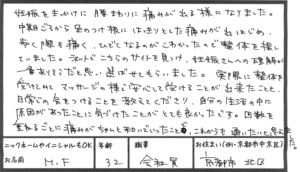 妊娠をきっかけに腰まわりに痛みが出る様になりました。
中期ごろから足のつけ根にはっきりとした痛みが出はじめ、
歩く際も痛く、ひどくなるのがこわかったので整体を探し
ていました。ネットでこちらのサイトを見つけ、妊娠さんへの理解が
一番ありそうだと思い、選ばせてもらいました。実際に整体を
受けてみてマッサージの様に安心して受けることが出来たこと、
日常の気をつけることを教えてくださり、自分の生活の中に
原因があったことに気づけたことがとても良かったです。回数を
重ねるごとに痛みがちゃんと和らいでいったことで、これからも通いたいと思えました。
ニックネームやイニシャルもOK 年齢 職業 お住まい(例:京都市中京区)
お名前 M.F 32 会社員 京都市 北区